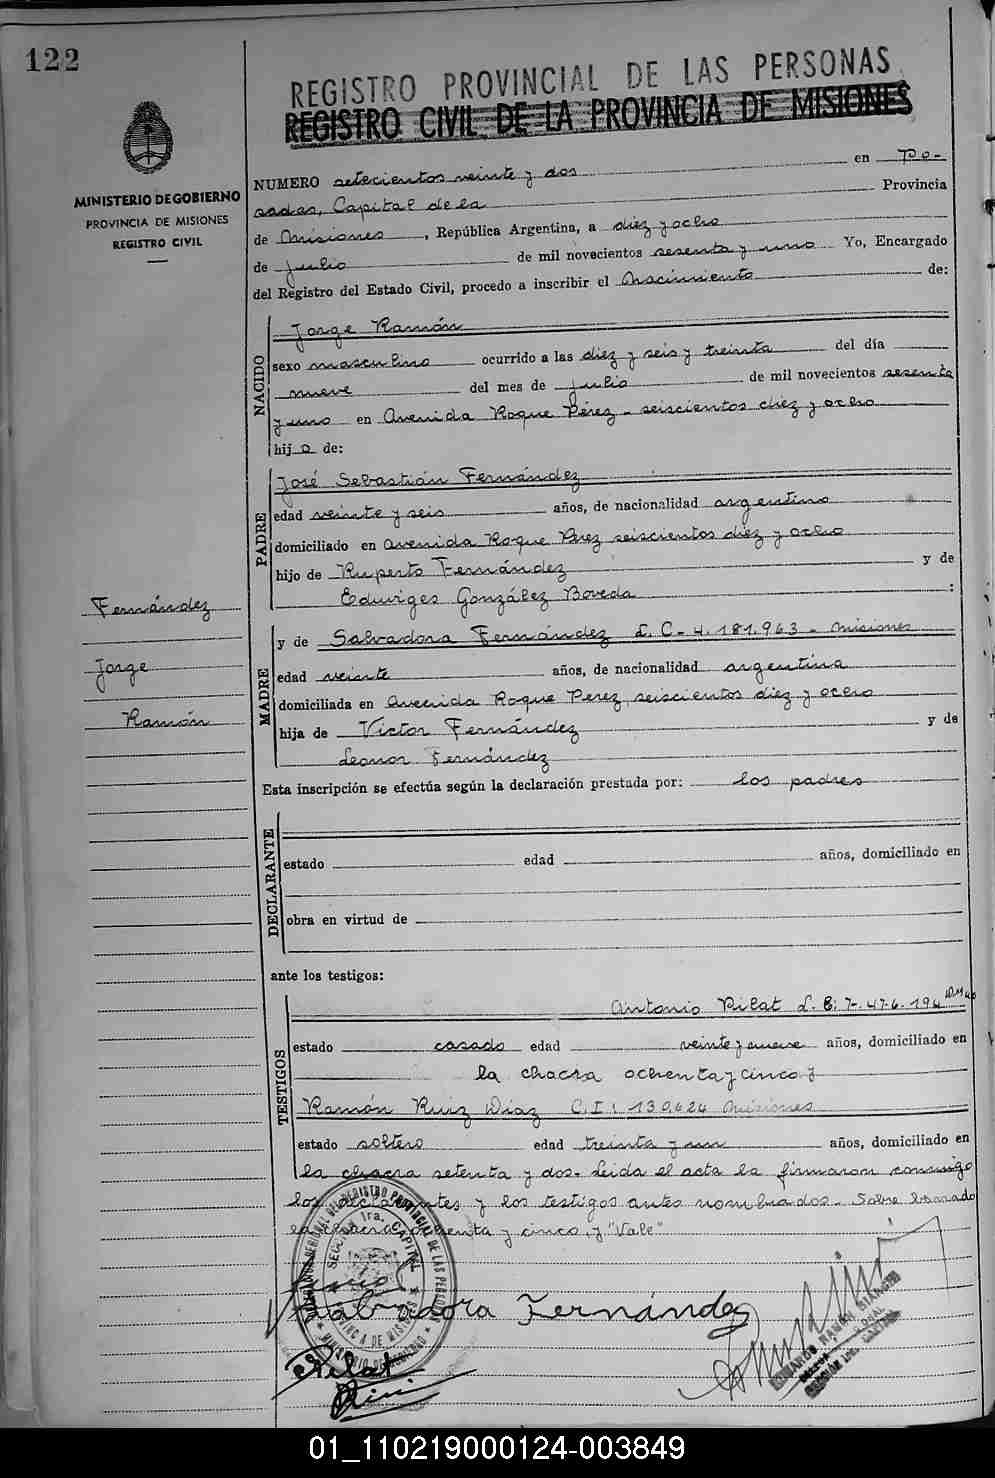 122
REGISTRO PROVINCIAL DE LAS PERSONAS
REGISTRO CIVIL DE LA PROVINCIA DE MISIONES
MINISTERIO DE GOBIERNO
PROVINCIA DE MISIONES
REGISTRO CIVIL
NUMERO setecientos veinte y dos en Po-
sadas, Capital de la Provincia
de Misiones, República Argentina, a diez y ocho
de julio de mil novecientos sesenta y uno Yo, Encargado
del Registro del Estado Civil, procedo a inscribir el nacimiento de:
NACIDO
Jorge Ramón
sexo masculino ocurrido a las diez y seis y treinta del día
nueve del mes de julio de mil novecientos sesenta
y uno en Avenida Roque Pérez - seiscientos diez y ocho
hij o de:
PADRE
José Sebastián Fernández
edad veinte y seis años, de nacionalidad argentino
domiciliado en avenida Roque Pérez seiscientos diez y ocho
hijo de Ruperto Fernández y de
Eduviges González Boveda :
Fernández
Jorge
Ramón
MADRE
y de Salvadora Fernández L. C - 4.181.963 - Misiones
edad veinte años, de nacionalidad argentina
domiciliada en Avenida Roque Perez, seiscientos diez y ocho
hija de Victor Fernández y de
Leonor Fernández
Esta inscripción se efectúa según la declaración prestada por: los padres
DECLARANTE
estado edad años, domiciliado en
obra en virtud de
ante los testigos:
TESTIGOS
Antonio Pilat L. E: 7.476.194
estado casado edad veinte y nueve años, domiciliado en
la chacra ochenta y cinco y
Ramón Ruiz Diaz C.I: 130.624 Misiones
estado soltero edad treinta y un años, domiciliado en
la chacra setenta y dos. Leida el acta la firmaron conmigo
los declarantes y los testigos antes nombrados. Sobre borrado
la chacra ochenta y cinco, y "Vale"
SECCION 1ra. CAPITAL
PROVINCIA DE MISIONES
Salvadora Fernández
Pilat
01_110219000124-003849